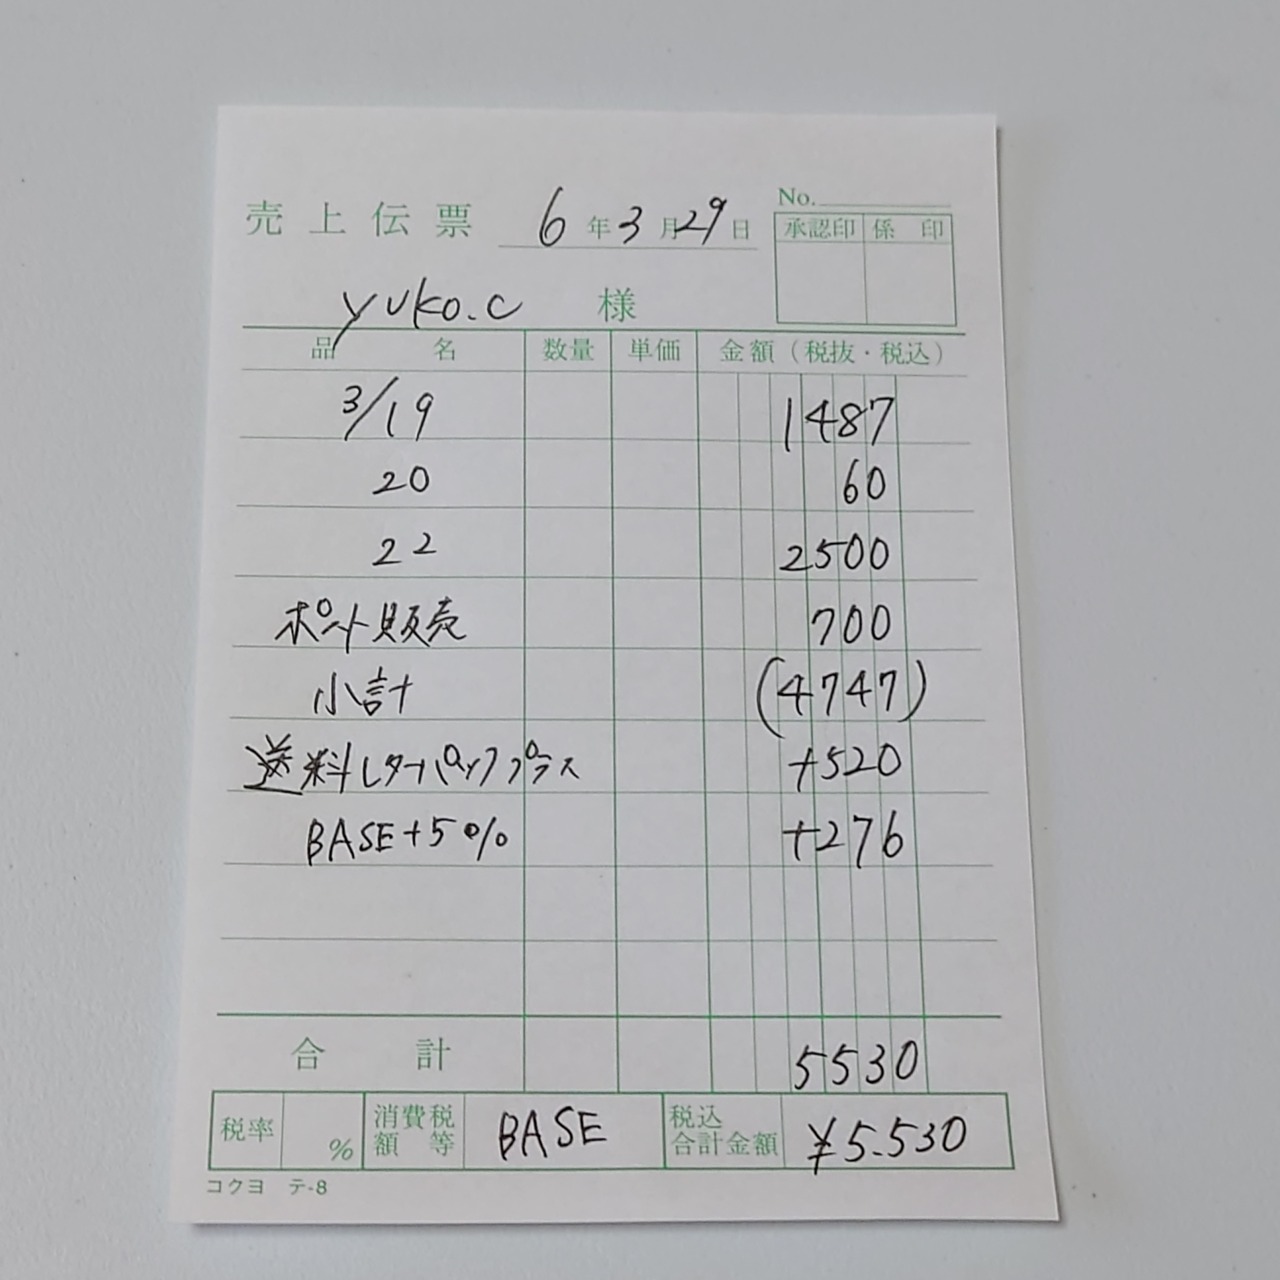 No.
売上伝票 6年3月29日
承認印 係印
yuko.c 様
品名 数量 単価 金額(税抜・税込)
3/19 1487
20 60
22 2500
ポント販売 700
小計 (4747)
送料レターパックプラス +520
BASE+5% +276
合計 5530
税率 % 消費税額等 BASE 税込合計金額 ¥5.530
コクヨ テ-8